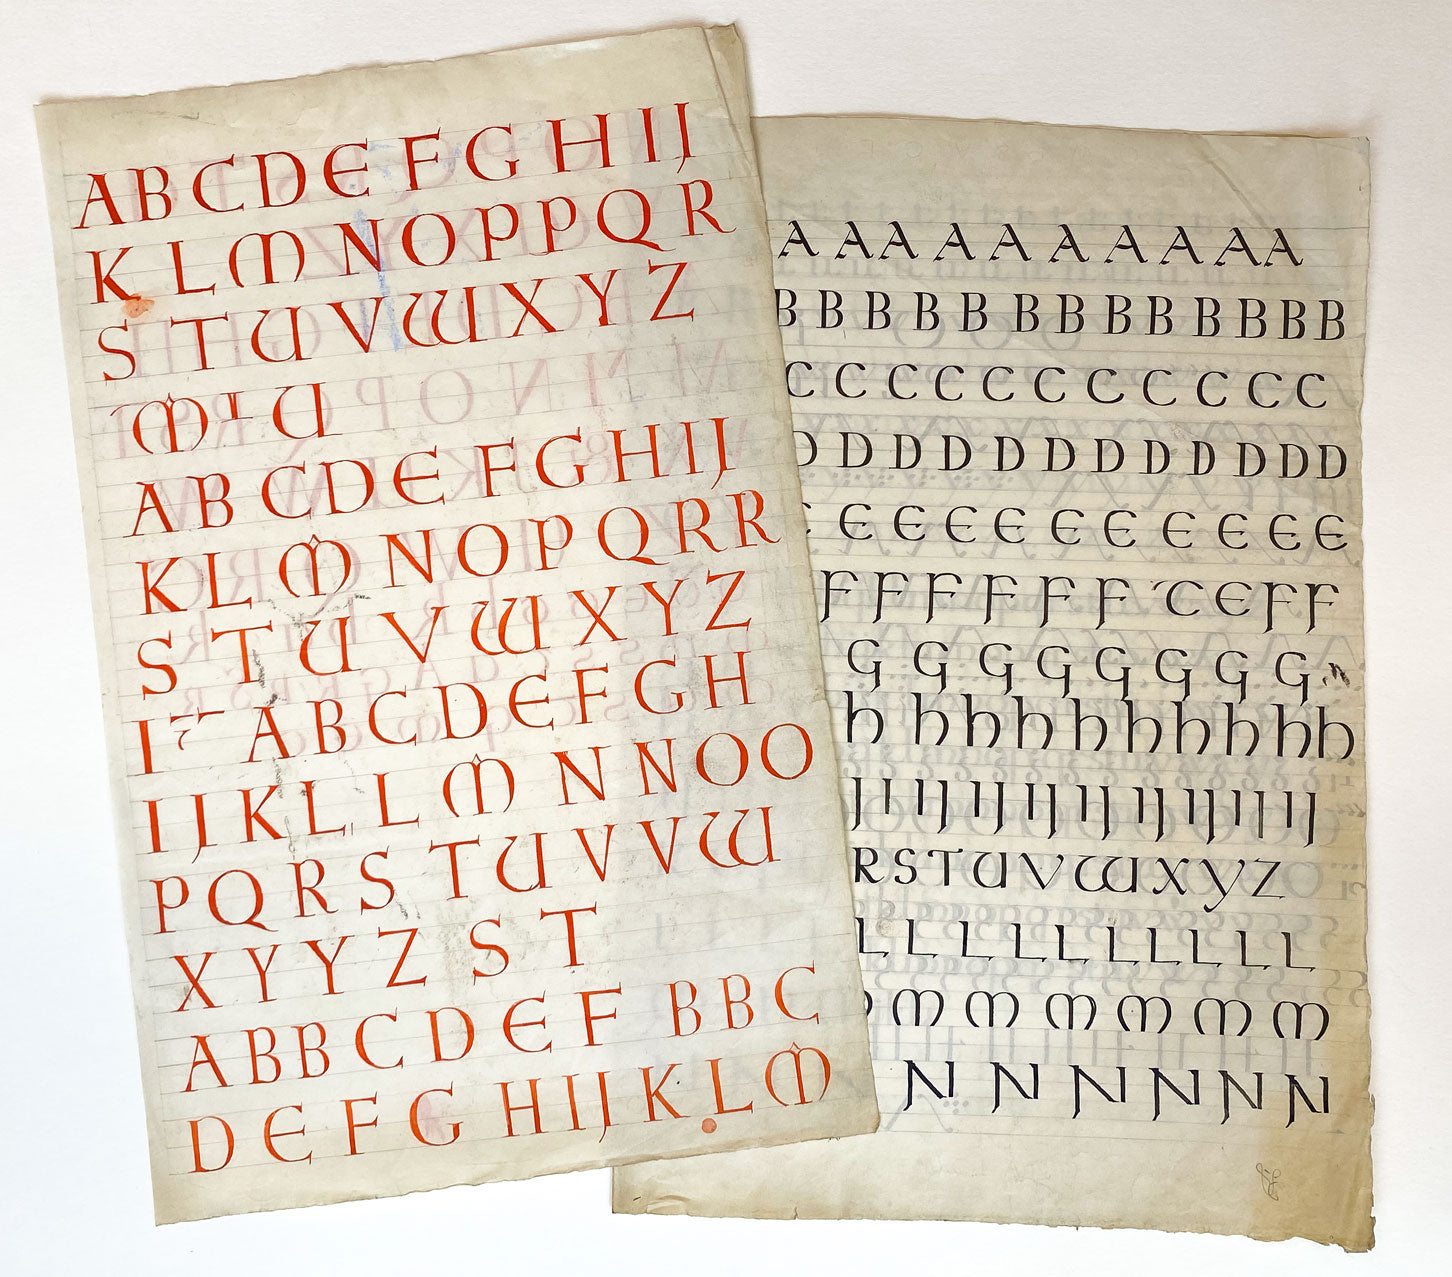 ABCDEFGHIJ
KLMNOPPQR
STUVWXYZ
M I U
ABCDEFGHIJ
KLMNOPQRR
STUVWXYZ
I ABCDEFGH
IJKLLMNNOO
PQRSTUVVW
XYYZ ST
ABBCDEF BBC
DEFGHIJKLM
A A A A A A A A A A
B B B B B B B B B B B B B
C C C C C C C C C C C
D D D D D D D D D D D D
E E E E E E E E E E
F F F F F F C E F F
G G G G G G G G
h h h h h h h h h h
J I I J I J I J I J I J I J I I I J
R S T U V W X Y Z
L L L L L L L L L L
M M M M M M
N N N N N N